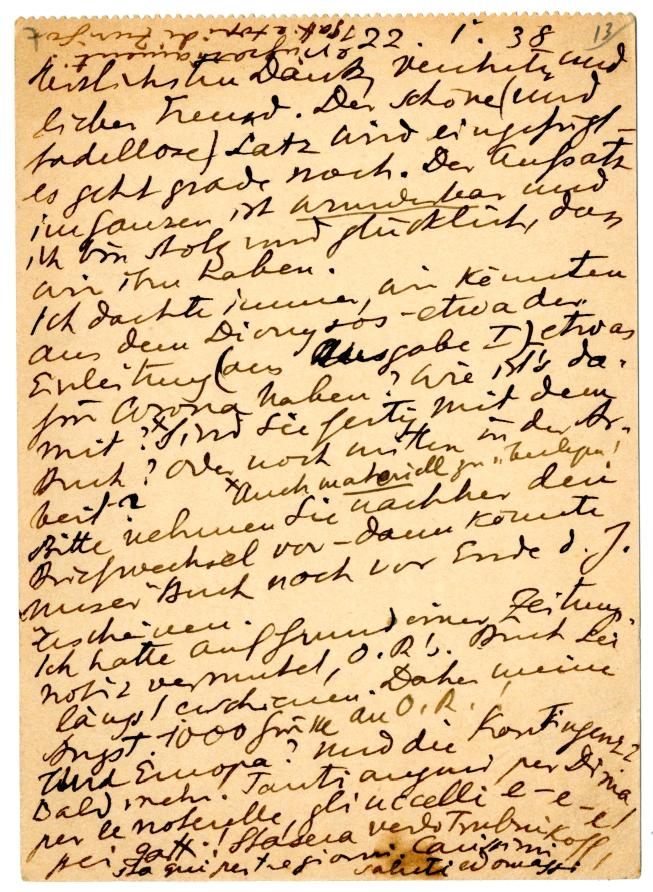 22. I. 38
13
Herzlichsten Dank, verehrter und
lieber Freund. Der schöne (und
tadellose) Satz wird eingefügt –
es geht grade noch. Der Aufsatz
im ganzen ist wunderbar und
ich bin stolz und glücklich, dass
wir ihn haben.
Ich dachte immer, wir könnten
aus dem Dionysos – etwa der
Einleitung (aus Ausgabe I) etwas
für Corona haben? Wie ist's da-
mit? x Sind Sie fertig mit dem
Buch? Oder noch mitten in der Ar-
beit?
x Auch materiell zu überlegen!
Bitte nehmen Sie nachher den
Briefwechsel vor – dann könnte
unser Buch noch vor Ende d. J.
erscheinen.
Ich hatte auf Grund einer Zeitungs-
notiz vermutet, O.R!s. Buch sei
längst erschienen. Daher meine
Angst. 1000 Grüsse an O.R.!
Und Europa? Und die Kontingenz?
Bald mehr. Tanti auguri per Dina,
per le noterelle, gli uccelli e - e - e!
pei gatti! Stasera vedo Trubnikoff,
sta qui per tre giorni. Carissimi
saluti ed omaggi